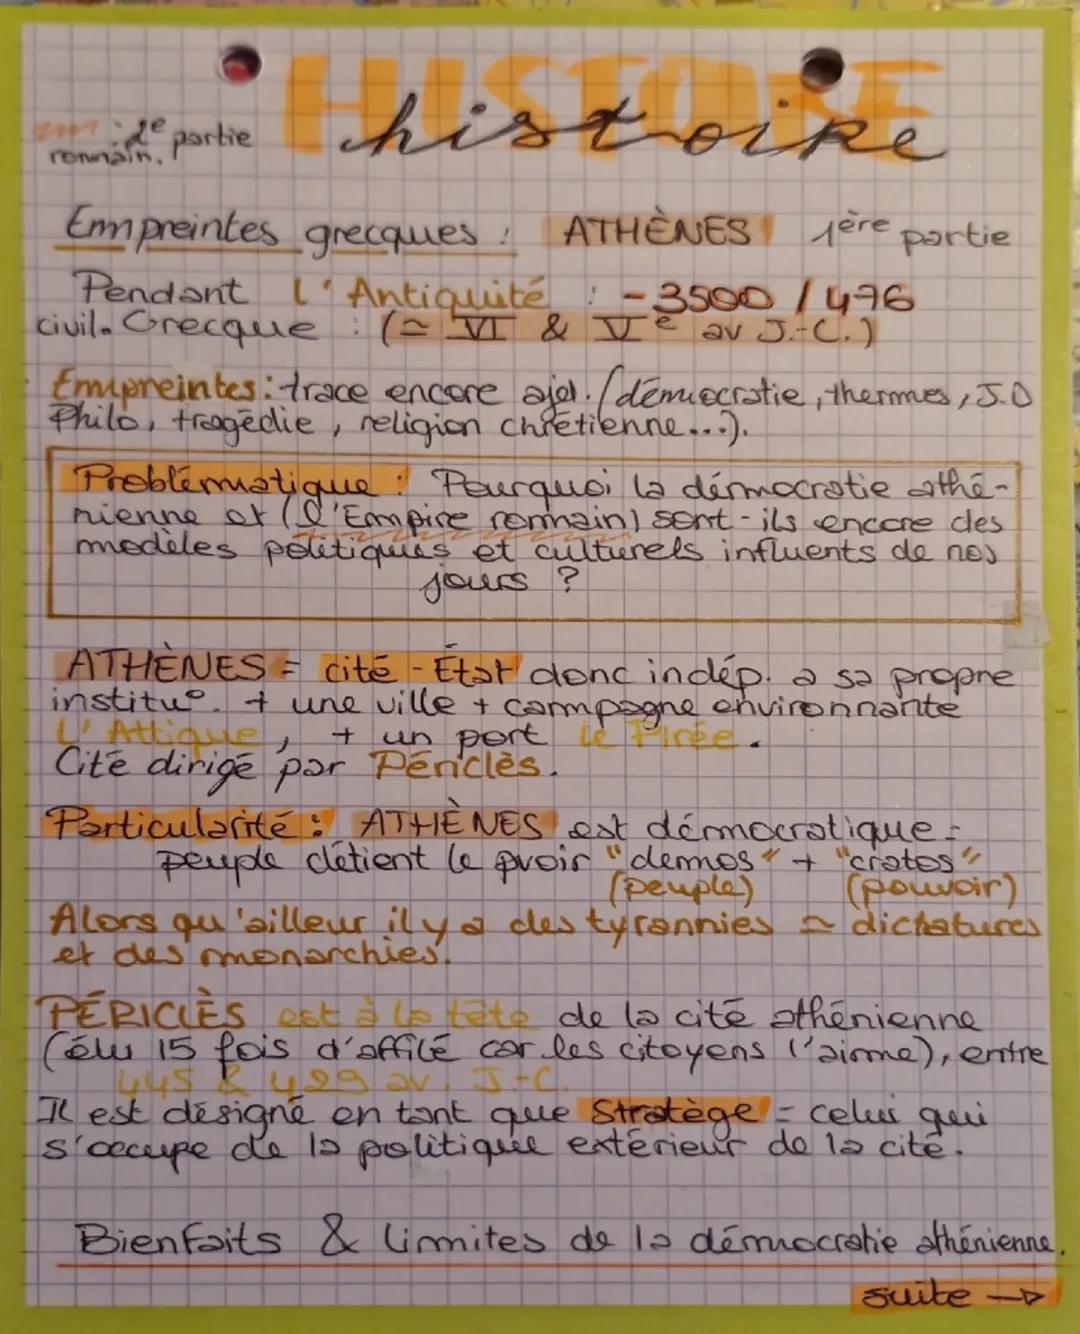 HISTOIRE
histoire
2e partie
romain.
Empreintes grecques : ATHÈNES 1ère partie
Pendant l'Antiquité : -3500 / 476
civil. Grecque : (≃ VI & Ve av J.-C.)
Empreintes : trace encore ajd. (démocratie, thermes, J.O
Philo, tragédie, religion chrétienne...).
Problématique : Pourquoi la démocratie athé-
nienne et (l'Empire romain) sont-ils encore des
modèles politiques et culturels influents de nos
jours ?
ATHÈNES = cité-État donc indép. a sa propre
institu°. + une ville + campagne environnante
L'Attique, + un port le Pirée.
Cité dirigé par Périclès.
Particularité : ATHÈNES est démocratique =
peuple détient le pvoir "demos" + "cratos"
(peuple) (pouvoir)
Alors qu'ailleur il y a des tyrannies ≃ dictatures
et des monarchies.
PÉRICLÈS est à la tête de la cité athénienne
(élu 15 fois d'affilé car les citoyens l'aime), entre
445 & 429 av. J-C.
Il est désigné en tant que Stratège = celui qui
s'occupe de la politique extérieur de la cité.
Bienfaits & limites de la démocratie athénienne.
suite →